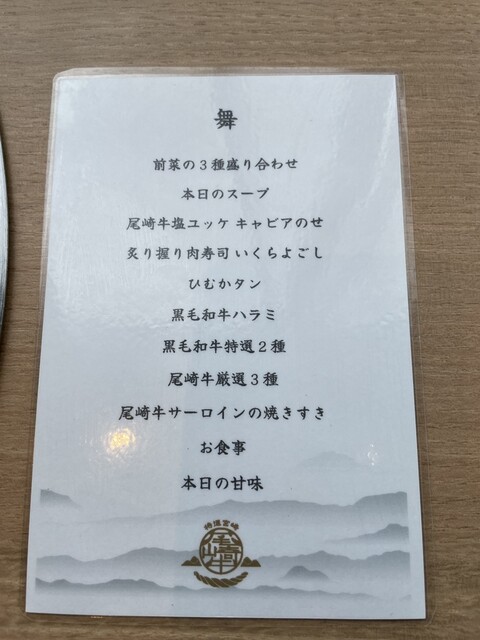 舞
前菜の3種盛り合わせ
本日のスープ
尾崎牛塩ユッケ キャビアのせ
炙り握り肉寿司 いくらよごし
ひむかタン
黒毛和牛ハラミ
黒毛和牛特選2種
尾崎牛厳選3種
尾崎牛サーロインの焼きすき
お食事
本日の甘味
尾崎牛